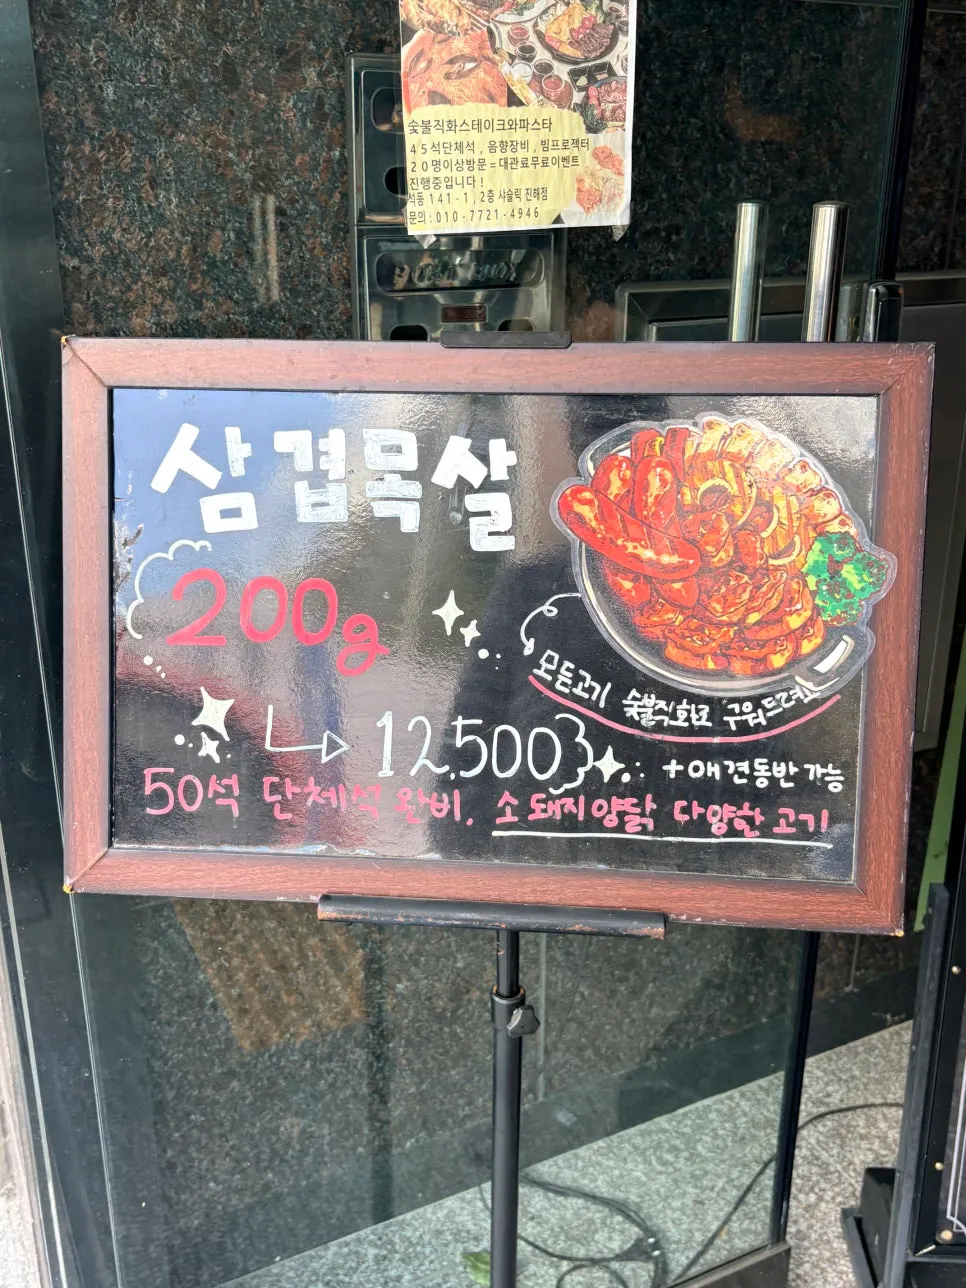 숯불직화스테이크와파스타
45석단체석, 음향장비, 빔프로젝터
20명이상방문=대관료무료이벤트
진행중입니다!
석동141-1, 2층 샤슬릭 진해점
문의:010-7721-4946
삼겹목살
200g
모든고기 숯불직화로 구워드려요
12,500
+애견동반가능
50석 단체석 완비. 소돼지양닭 다양한고기